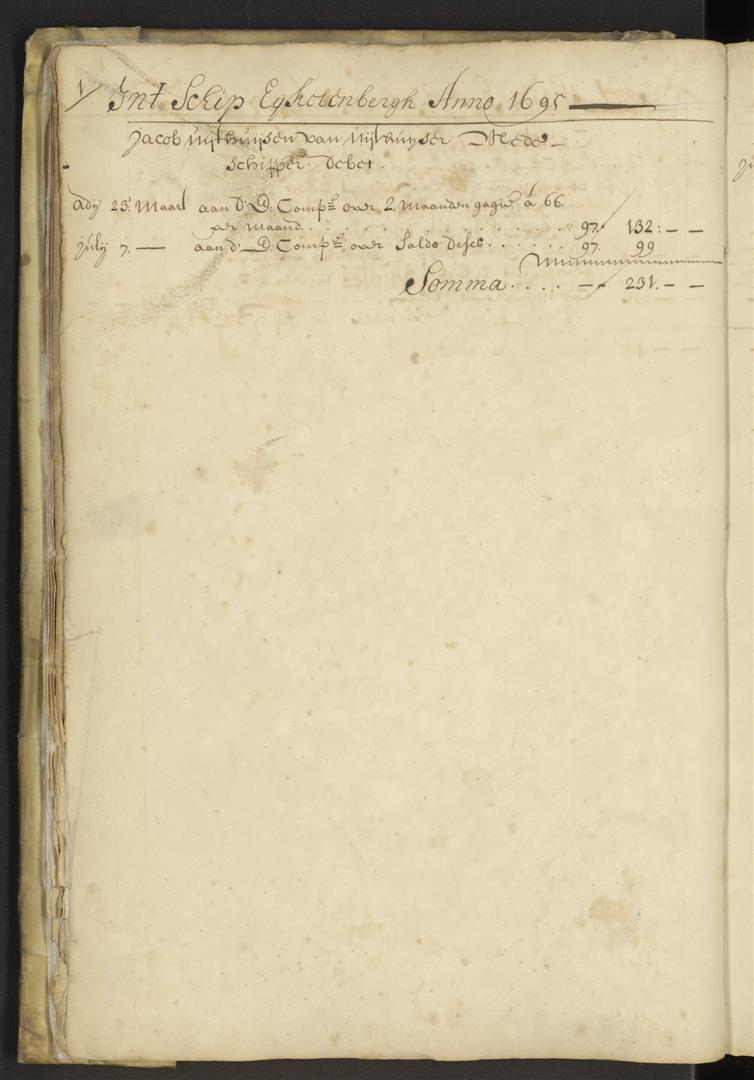 1/ Int Schip Eykelenbergh Anno 1695
Jacob uijthuijsen van uijthuyser Mede
schipper. Debet.
Ady 23: Maart aan d' E: Compe over 2 maanden gagie á 66.
per maand . . . . . . . . . . . . . 97. 132: – –
july 7. — aan d' E: Compe over Saldo deses . . . . . . 97. 99
Somma . . . . – – 231. – –